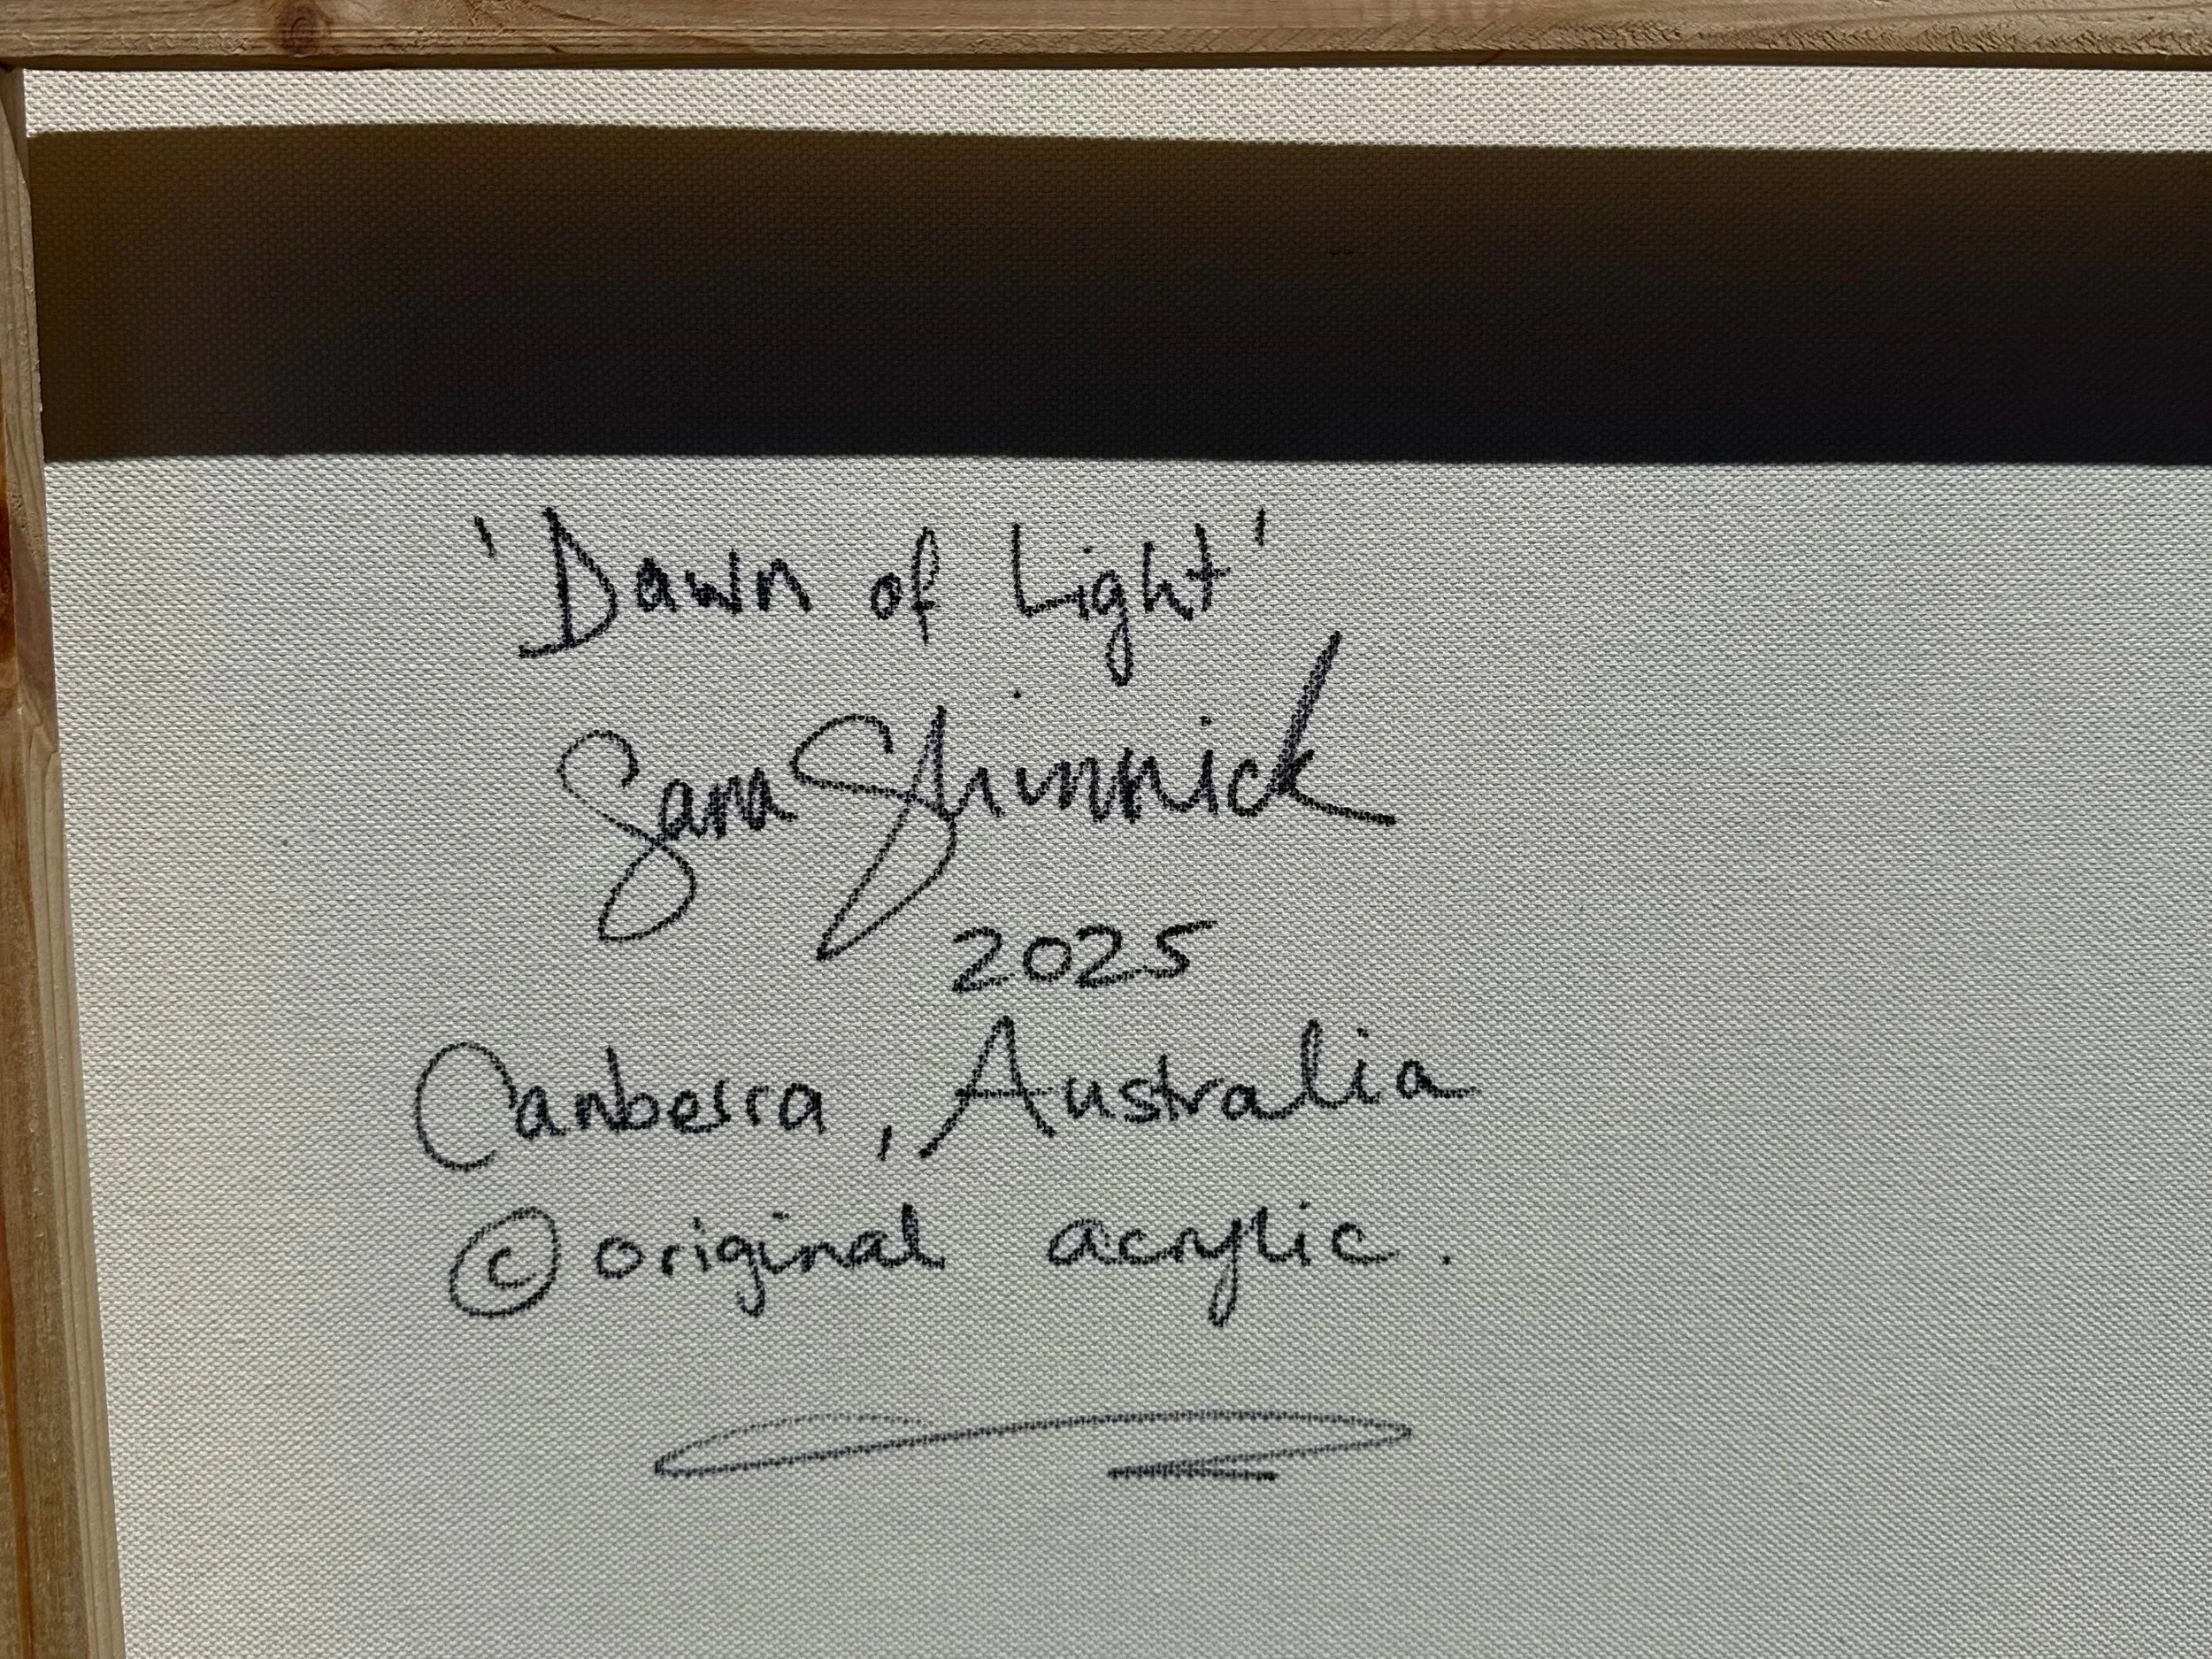 'Dawn of Light'
Sara Shinnick
2025
Canberra, Australia
© original acrylic.